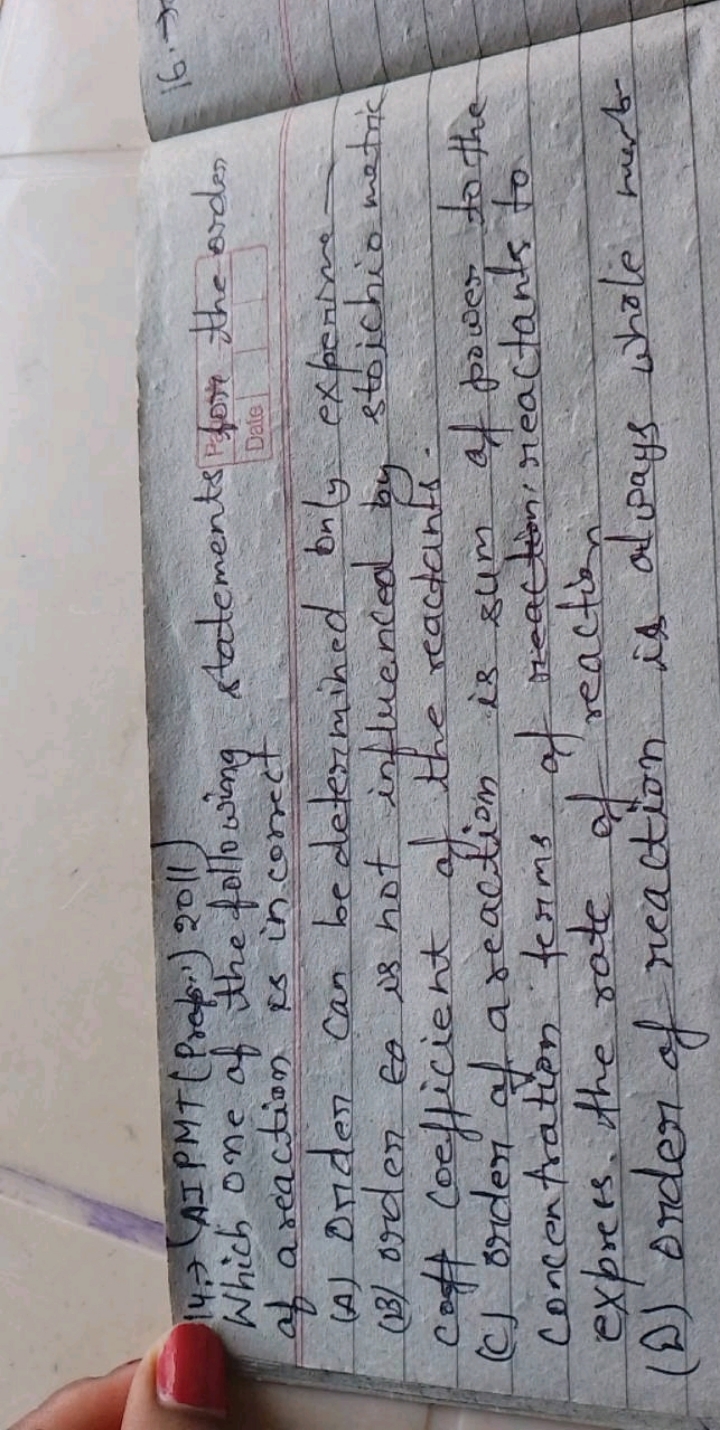 16.→
14.→ (AIPMT (Prep..) 2011)
Which one of the following statements for the order
Date
of a reaction is incorrect
(A) Order can be determined only experime
(B) order is not influenced by stoichiometric
coefficient of the reactants.
(C) order of a reaction is sum of power to the
concentration terms of reactants to
express the rate of reaction
(D) order of reaction is always whole